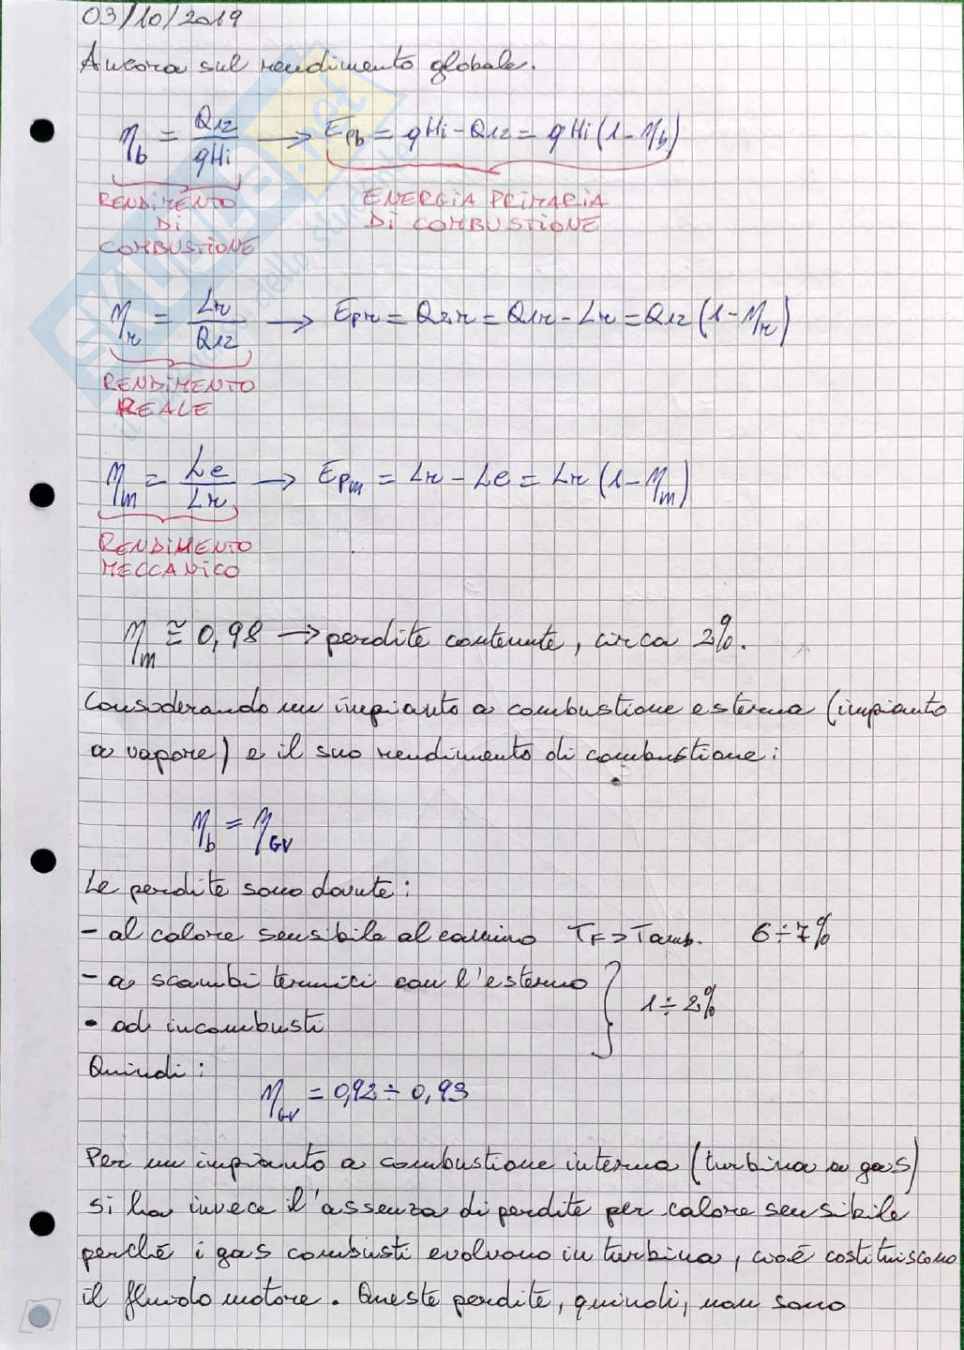 03/10/2019
Ancora sul rendimento globale.
η_b = Q12/qHi → E_pb = qHi - Q12 = qHi (1 - η_b)
RENDIMENTO DI COMBUSTIONE
ENERGIA PRIMARIA DI COMBUSTIONE
η_r = Lr/Q12 → E_pr = Q2r = Q1r - Lr = Q12 (1 - η_r)
RENDIMENTO REALE
η_m = Le/Lr → E_pm = Lr - Le = Lr (1 - η_m)
RENDIMENTO MECCANICO
η_m ≅ 0,98 → perdite contenute, circa 2%.
Considerando un impianto a combustione esterna (impianto
a vapore) e il suo rendimento di combustione:
η_b = η_GV
Le perdite sono dovute:
- al calore sensibile al camino T_F > Tamb. 6÷7%
- a scambi termici con l'esterno
- ad incombusti } 1÷2%
Quindi:
η_GV = 0,92 ÷ 0,93
Per un impianto a combustione interna (turbina a gas)
si ha invece l'assenza di perdite per calore sensibile
perché i gas combusti evolvono in turbina, cioè costituiscono
il fluido motore. Queste perdite, quindi, non sono